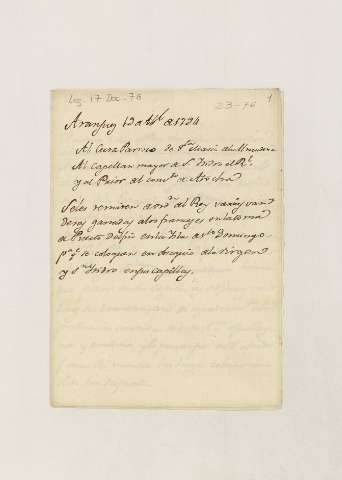 Leg. 17 Doc. 76
23-76
1
Aranjuez 13 de Abl. de 1794
Al Cura Parroco de Sta. Maria de la Almudena
Al Capellan mayor de S. Isidro el Rl.
y al Prior del convto. de Atocha
Se les remiten de ordn. del Rey varias van
deras ganadas a los franceses en la toma
de Puerto Delfin en la Isla de Sto. Domingo
pa. qe. se coloquen en obsequio de la Virgen
y Sn. Isidro en sus capillas,